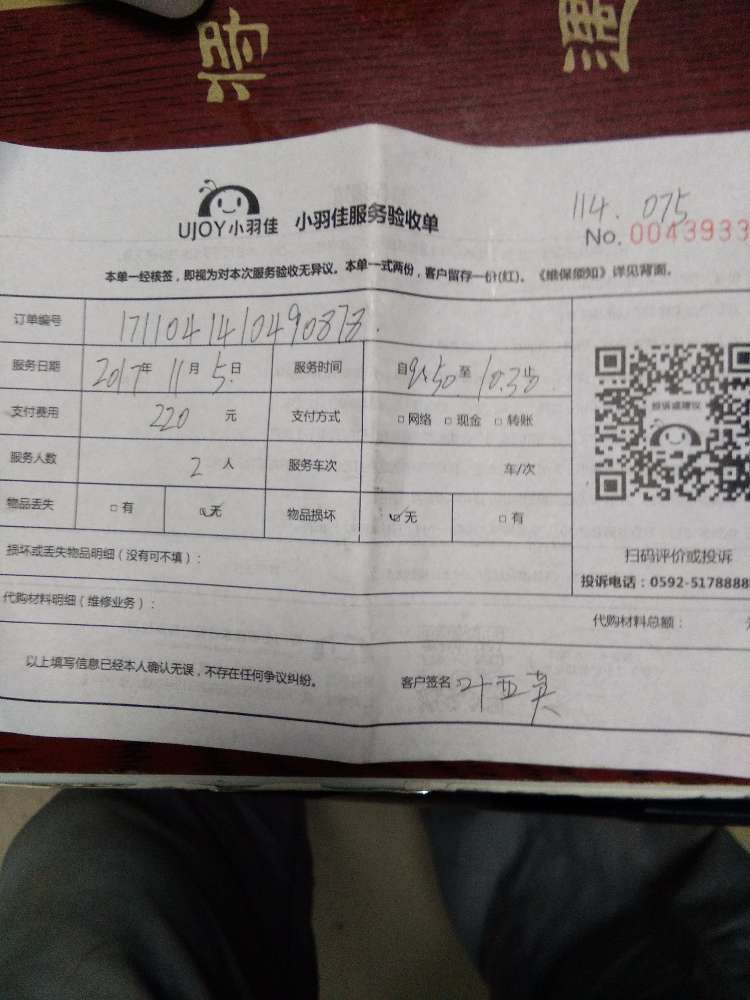 将
UJOY小羽佳 小羽佳服务验收单
114.075
No. 0043933
本单一经核签，即视为对本次服务验收无异议。本单一式两份，客户留存一份(红)。《维保须知》详见背面。
订单编号 171104141049087
服务日期 2017年11月5日 服务时间 自 至
支付费用 220 元 支付方式 □网络 □现金 □转账
服务人数 2 人 服务车次 车/次
物品丢失 □有 无 物品损坏 无 □有
投诉或建议
损坏或丢失物品明细（没有可不填）：
扫码评价或投诉
投诉电话：0592-5178888
代购材料明细（维修业务）：
代购材料总额：
以上填写信息已经本人确认无误，不存在任何争议纠纷。 客户签名 叶亚英